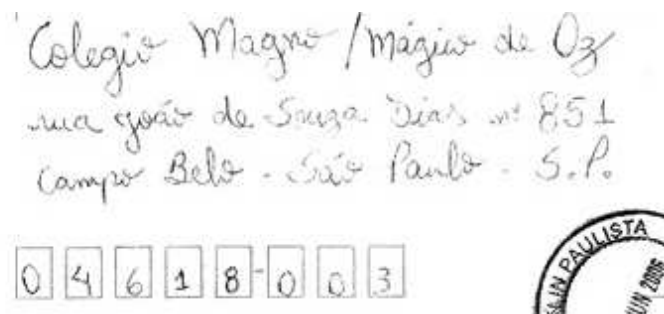 Colegio Magno / Mágico de Oz
rua joão de Souza Dias nº 851
Campo Belo - São Paulo - S.P.
04618-003
PAULISTA
JUN 2006